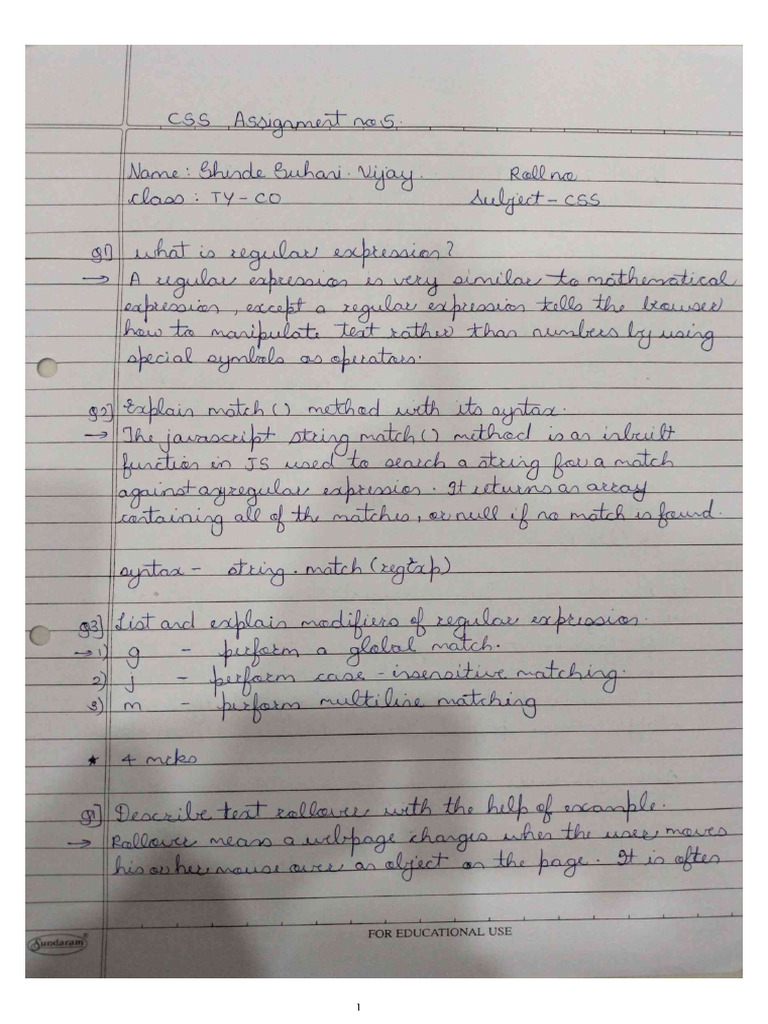 CSS Assignment no 5.
Name : Shinde Suhani. Vijay. Roll no
class : TY - CO Subject - CSS
Q1] what is regular expression?
→ A regular expression is very similar to mathematical
expression, except a regular expression tells the browser
how to manipulate text rather than numbers by using
special symbols as operators.
Q2] Explain match() method with its syntax.
→ The javascript string match() method is an inbuilt
function in JS used to search a string for a match
against any regular expression. It returns an array
containing all of the matches, or null if no match is found.
syntax - string.match(regExp)
Q3] List and explain modifiers of regular expression.
→ 1) g - perform a global match.
2) j - perform case - insensitive matching.
3) m - perform multiline matching
★ 4 mrks
Q1] Describe text rollover with the help of example.
→ Rollover means a webpage changes when the user moves
his or her mouse over an object on the page. It is often
Sundaram®
FOR EDUCATIONAL USE
1